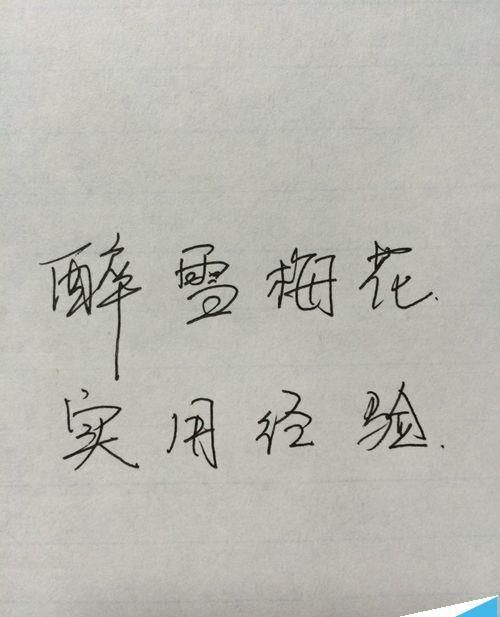 醉雪梅花.
实用经验.